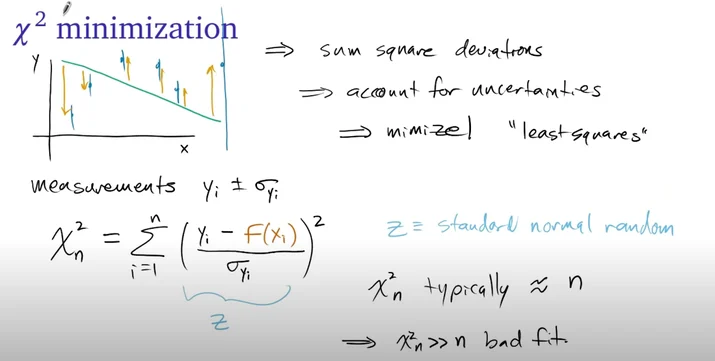 χ² minimization
y
x
⇒ sum square deviations
⇒ account for uncertainties
⇒ mimizel "least squares"
measurements yᵢ ± σ_yᵢ
χ²ₙ = Σⁿᵢ₌₁ ( (yᵢ − F(xᵢ)) / σ_yᵢ )²
z
z ≡ standard normal random
χ²ₙ typically ≈ n
⇒ χ²ₙ >> n bad fit.